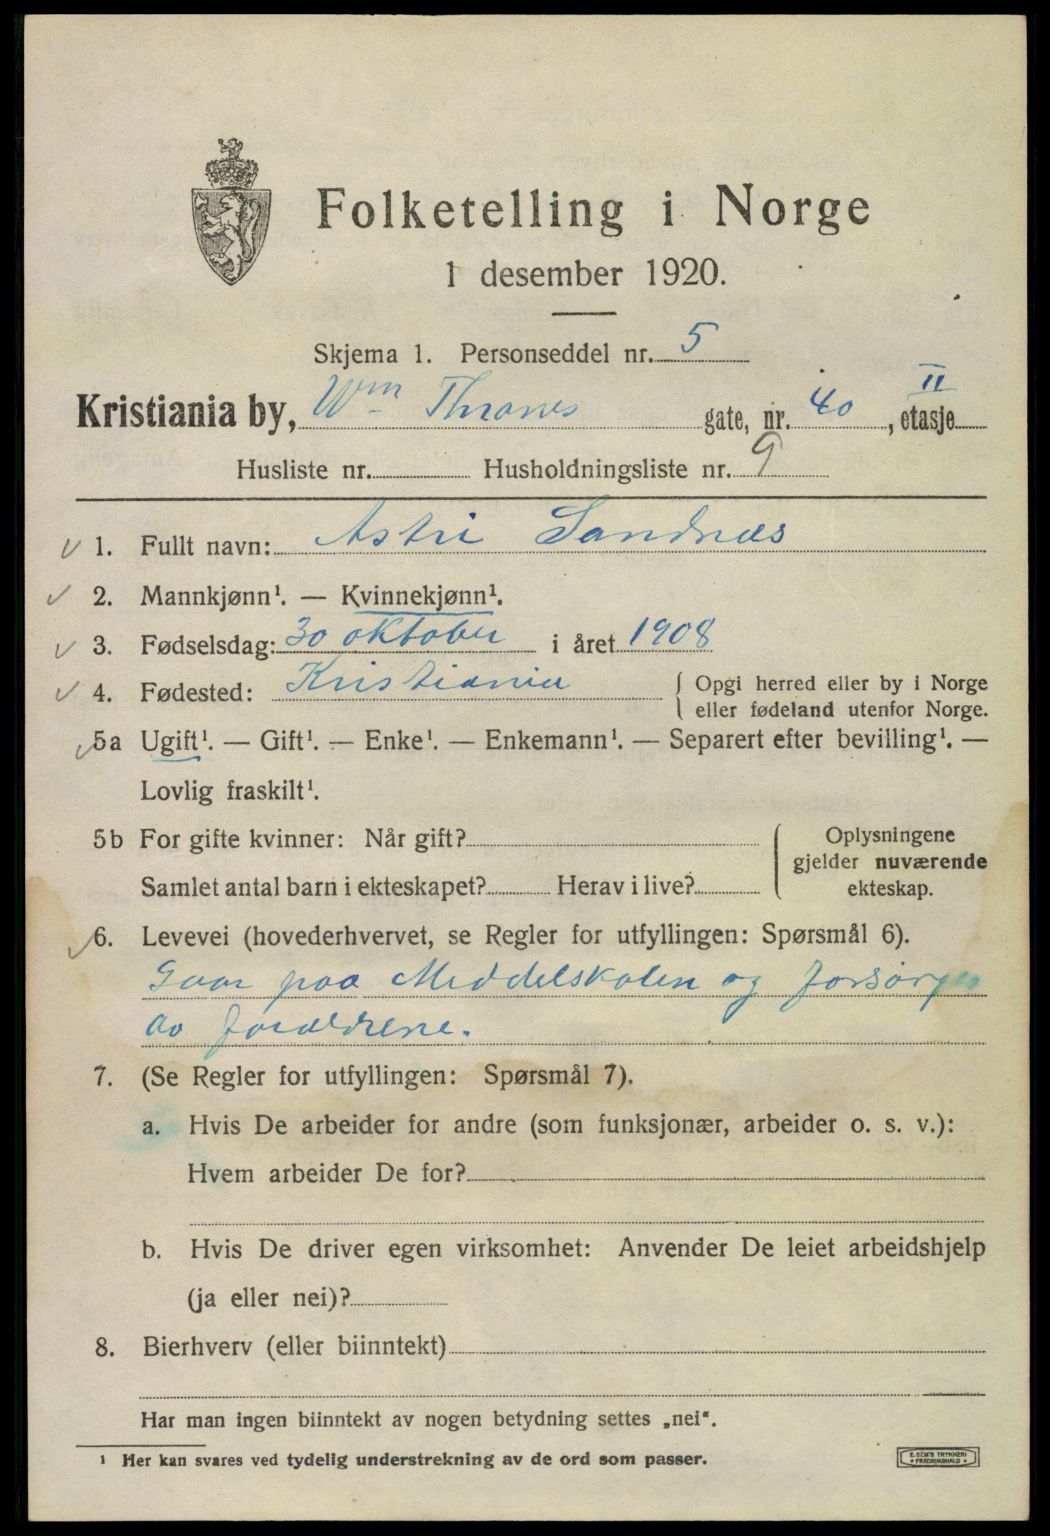 Folketelling i Norge
1 desember 1920.
Skjema 1. Personseddel nr. 5
Kristiania by, Wm Thranes gate, nr. 40, etasje II
Husliste nr. Husholdningsliste nr. 9
1. Fullt navn: Astri Sandnæs
2. Mannkjønn¹. — Kvinnekjønn¹.
3. Fødselsdag: 30 oktober i året 1908
4. Fødested: Kristiania { Opgi herred eller by i Norge
eller fødeland utenfor Norge.
5a Ugift¹. — Gift¹. — Enke¹. — Enkemann¹. — Separert efter bevilling¹. —
Lovlig fraskilt¹.
5b For gifte kvinner: Når gift? { Oplysningene
gjelder nuværende
Samlet antal barn i ekteskapet? Herav i live? ekteskap.
6. Levevei (hovederhvervet, se Regler for utfyllingen: Spørsmål 6).
Gaar paa Middelskolen og forsørges
av forældrene.
7. (Se Regler for utfyllingen: Spørsmål 7).
a. Hvis De arbeider for andre (som funksjonær, arbeider o. s. v.):
Hvem arbeider De for?
b. Hvis De driver egen virksomhet: Anvender De leiet arbeidshjelp
(ja eller nei)?
8. Bierhverv (eller biinntekt)
Har man ingen biinntekt av nogen betydning settes „nei“.
¹ Her kan svares ved tydelig understrekning av de ord som passer.
E. SEM'S TRYKKERI
FREDRIKSHALD